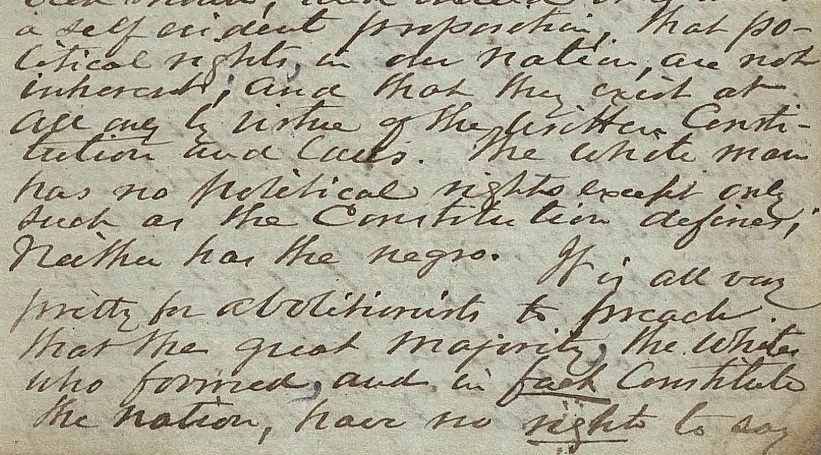 a self evident proposition, that po-
litical rights, in our nation, are not
inherent; and that they exist at
all only by virtue of the written Consti-
tution and laws. The white man
has no political rights except only
such as the Constitution defines;
Neither has the negro. It is all very
pretty for abolitionists to preach
that the great majority, the whites
who formed, and in fact Constitute
the nation, have no right to say